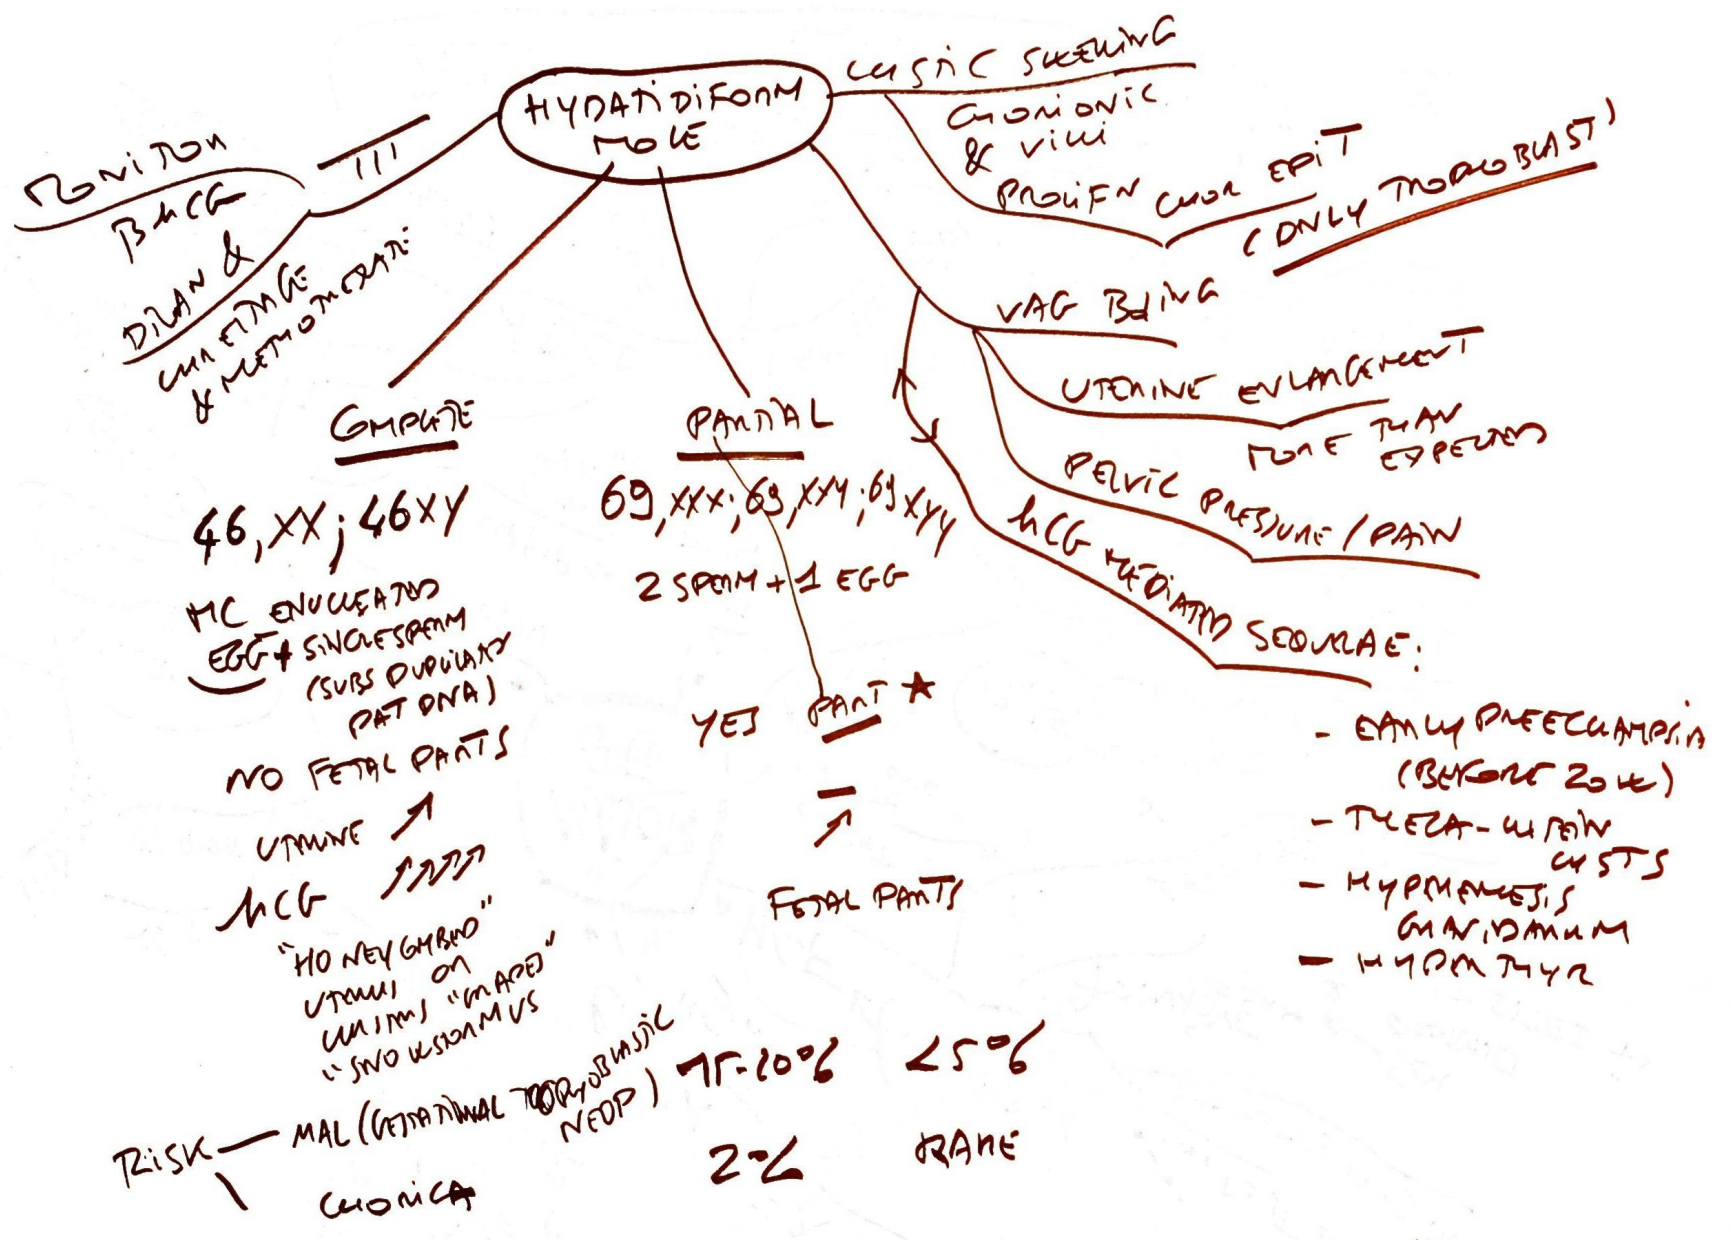 HYDATIDIFORM
MOLE
CYSTIC SWELLING
CHORIONIC
& VILLI
PROLIFN CHOR EPIT
(ONLY TROPHOBLAST)
VAG BLDING
UTERINE ENLARGEMENT
MORE THAN
EXPECTED
PELVIC PRESSURE / PAIN
hCG MEDIATED SEQUELAE:
- EARLY PREECLAMPSIA
(BEFORE 20 W)
- THECA-LUTEIN
CYSTS
- HYPEREMESIS
GRAVIDARUM
- HYPERTHYR
MONITOR
BhCG
DILAN &
CURETTAGE
& METHOTREXATE
COMPLETE
46,XX; 46XY
MC ENUCLEATED
EGG + SINGLE SPERM
(SUBS DUPLICATES
PAT DNA)
NO FETAL PARTS
UTERINE ↗
hCG ↗↗↗↗
"HONEYCOMBED"
UTERUS OR
CLUSTERS "GRAPES"
"SNOWSTORM US
PARTIAL
69,XXX; 69,XXY; 69XYY
2 SPERM + 1 EGG
YES PART ★
—
↗
FETAL PARTS
RISK — MAL (GESTATIONAL TROPHOBLASTIC
NEOP) 15-20% <5%
CHORICA 2% RARE